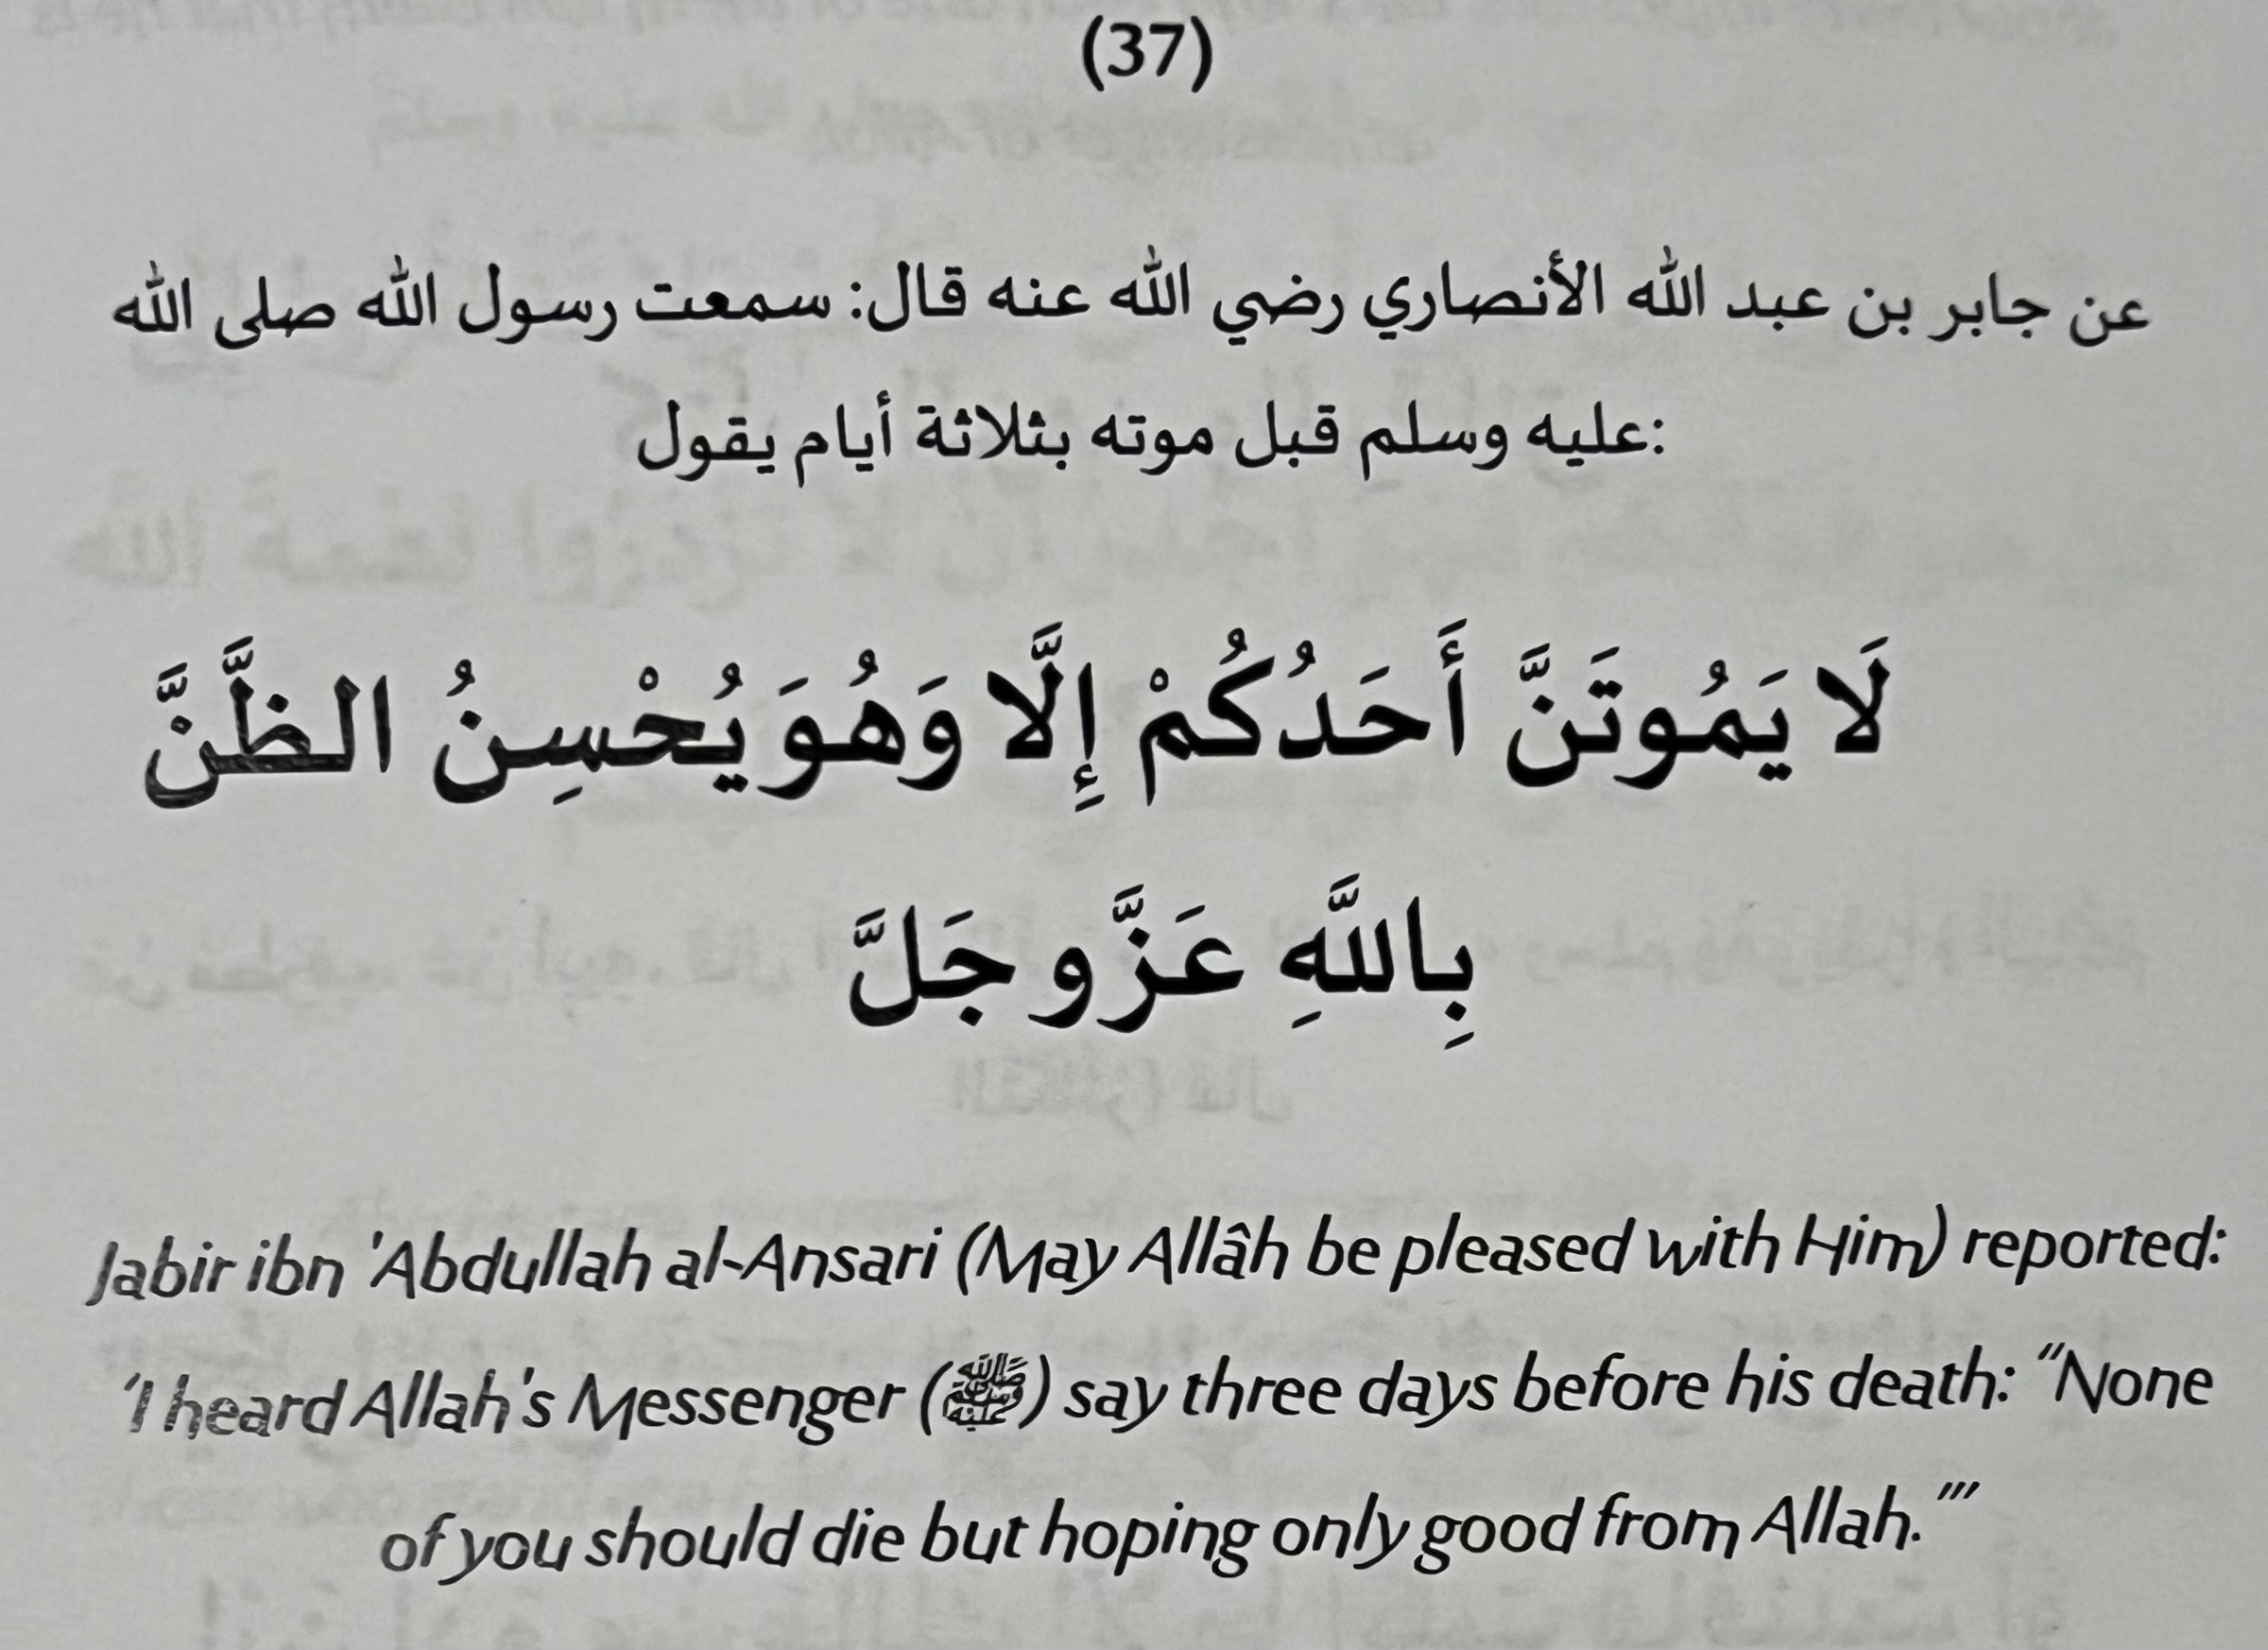 (37)
عن جابر بن عبد الله الأنصاري رضي الله عنه قال: سمعت رسول الله صلى الله
:عليه وسلم قبل موته بثلاثة أيام يقول
لَا يَمُوتَنَّ أَحَدُكُمْ إِلَّا وَهُوَ يُحْسِنُ الظَّنَّ
بِاللَّهِ عَزَّ و جَلَّ
Jabir ibn 'Abdullah al-Ansari (May Allâh be pleased with Him) reported:
'I heard Allah's Messenger (ﷺ) say three days before his death: "None
of you should die but hoping only good from Allah."'